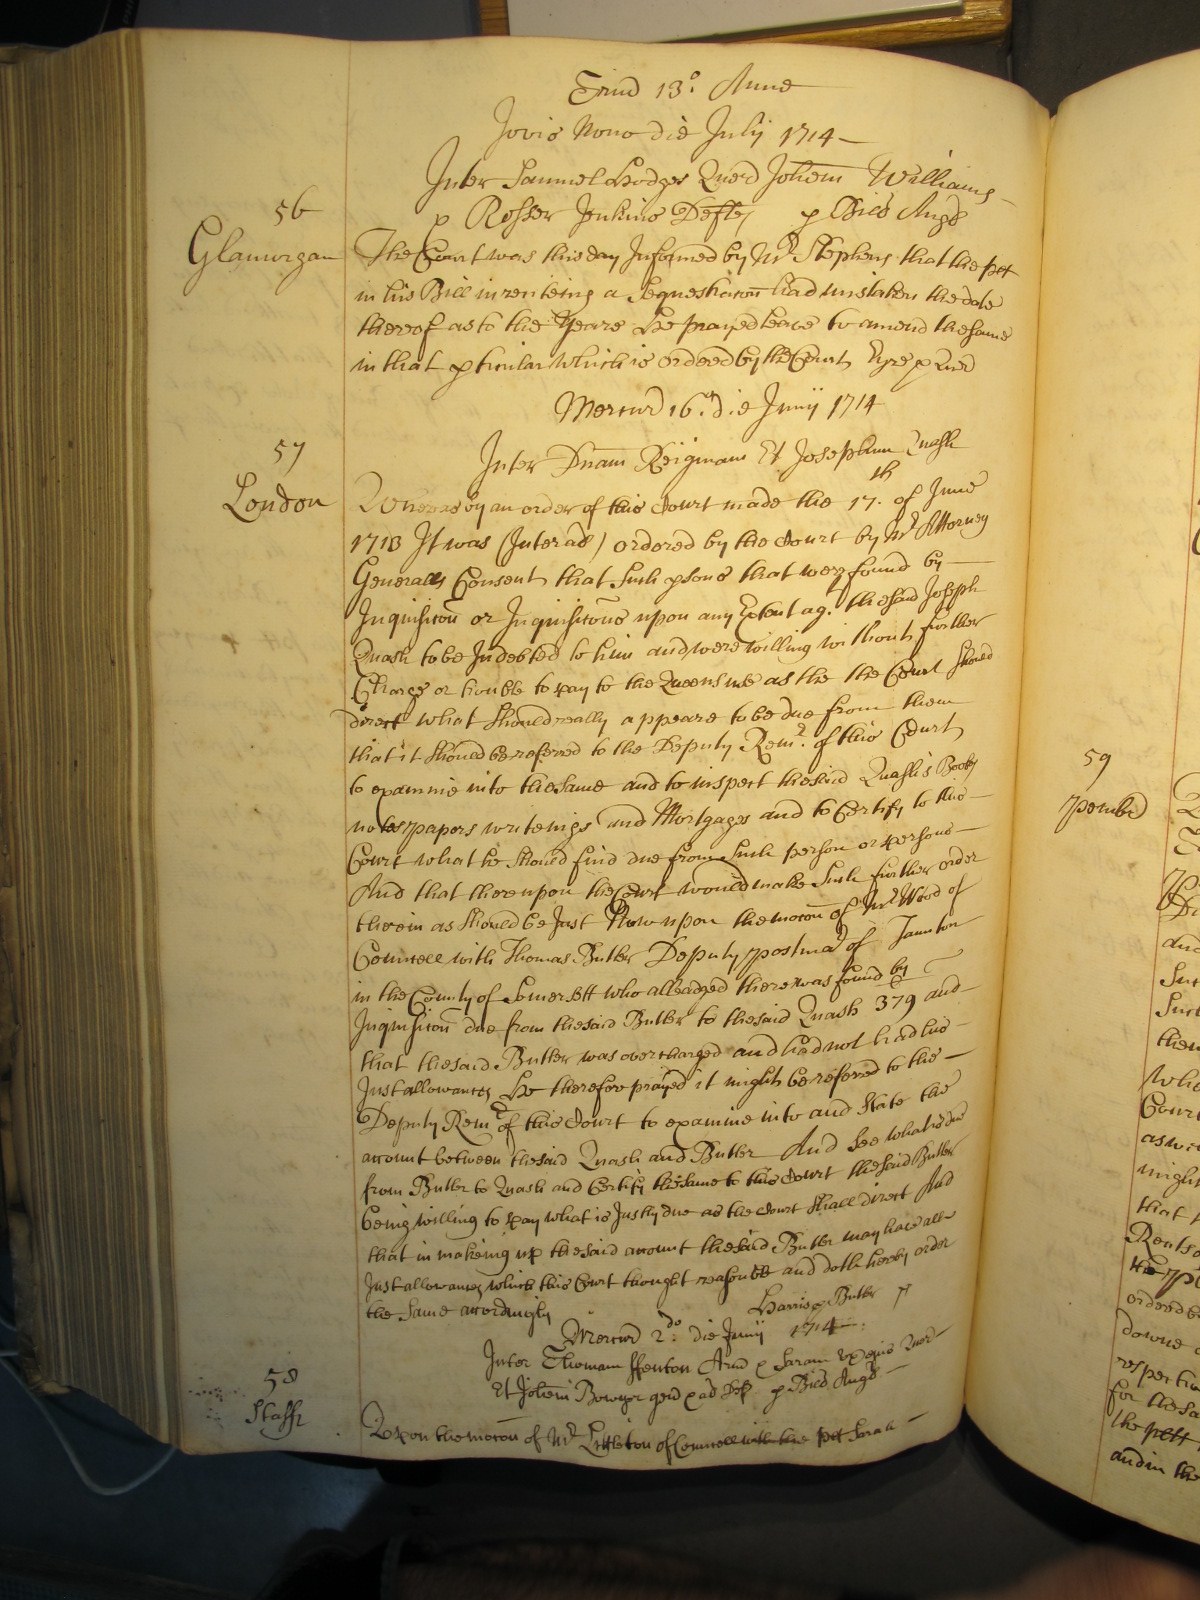 Trin 13.o Anne
Jovis Nono die July 1714
56
Glamorgan
Inter Samuel Hodges Quer Johem Williams
p Rosser Jenkins Defts p Bill Angl
The Court was this day Informed by Mr Stephens that the plt
in his Bill in reciteing a Sequestracon had mistaken the date
thereof as to the Yeare He prayed leave to amend the same
in that pticular which is ordered by the Court Eyre p Quer
Mercur 16.o die Junij 1714
57
London
Inter Dnam Reginam Et Josephum Quash
Whereas by an order of this Court made the 17.th of June
1713 It was (Inter al) ordered by the Court by Mr Attorney
Generalls Consent that Such psons that were found by
Inquisicon or Inquisicons upon any Extent ag.t the said Joseph
Quash to be Indebted to him and were willing without further
Charge or trouble to pay to the Queens use as the the Court should
direct what should really appeare to be due from them
that it should be referred to the Deputy Rem.r of this Court
to examine into the same and to inspect the said Quash's Books
notes papers writeings and Mortgages and to Certify to this
Court what he should find due from Such person or persons
And that thereupon the Court would make Such further order
therein as should be Just Now upon the mocon of Mr Wood of
Councell with Thomas Butler Deputy postmar of Taunton
in the County of Somersett who alleadged there was found by
Inquisicon due from the said Butler to the said Quash 379 and
that the said Butler was overcharged and had not had his
Just allowances He therefore prayed it might be referred to the
Deputy Remr of this Court to examine into and State the
account between the said Quash and Butler And See what is due
from Butler to Quash and Certify the same to this Court the said Butler
being willing to pay what is Justly due as the Court shall direct And
that in makeing up the said account the said Butler may have all
Just allowances which this Court thought reasonble and doth hereby order
the same accordingly Harris p Butler
Mercur 2.do die Junij 1714
58
Staff
Inter Thomam ffenton Arm p Saram Ux ejus Quer
Et Johem Bowyer gen p ad Def p Bill Angl
Upon the mocon of Mr Littleton of Councell with the plt Sarah
59
Pembr